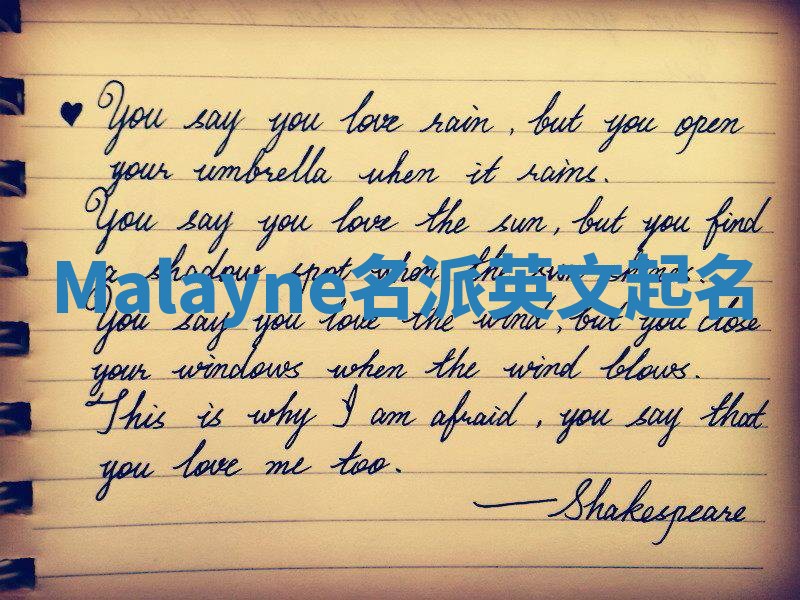 ♥ You say you love rain, but you open
your umbrella when it rains.
You say you love the sun, but you find
a shadow spot when the sun shines.
Malayne名派英文起名
You say you love the wind, but you close
your windows when the wind blows.
This is why I am afraid, you say that
you love me too.
—Shakespeare